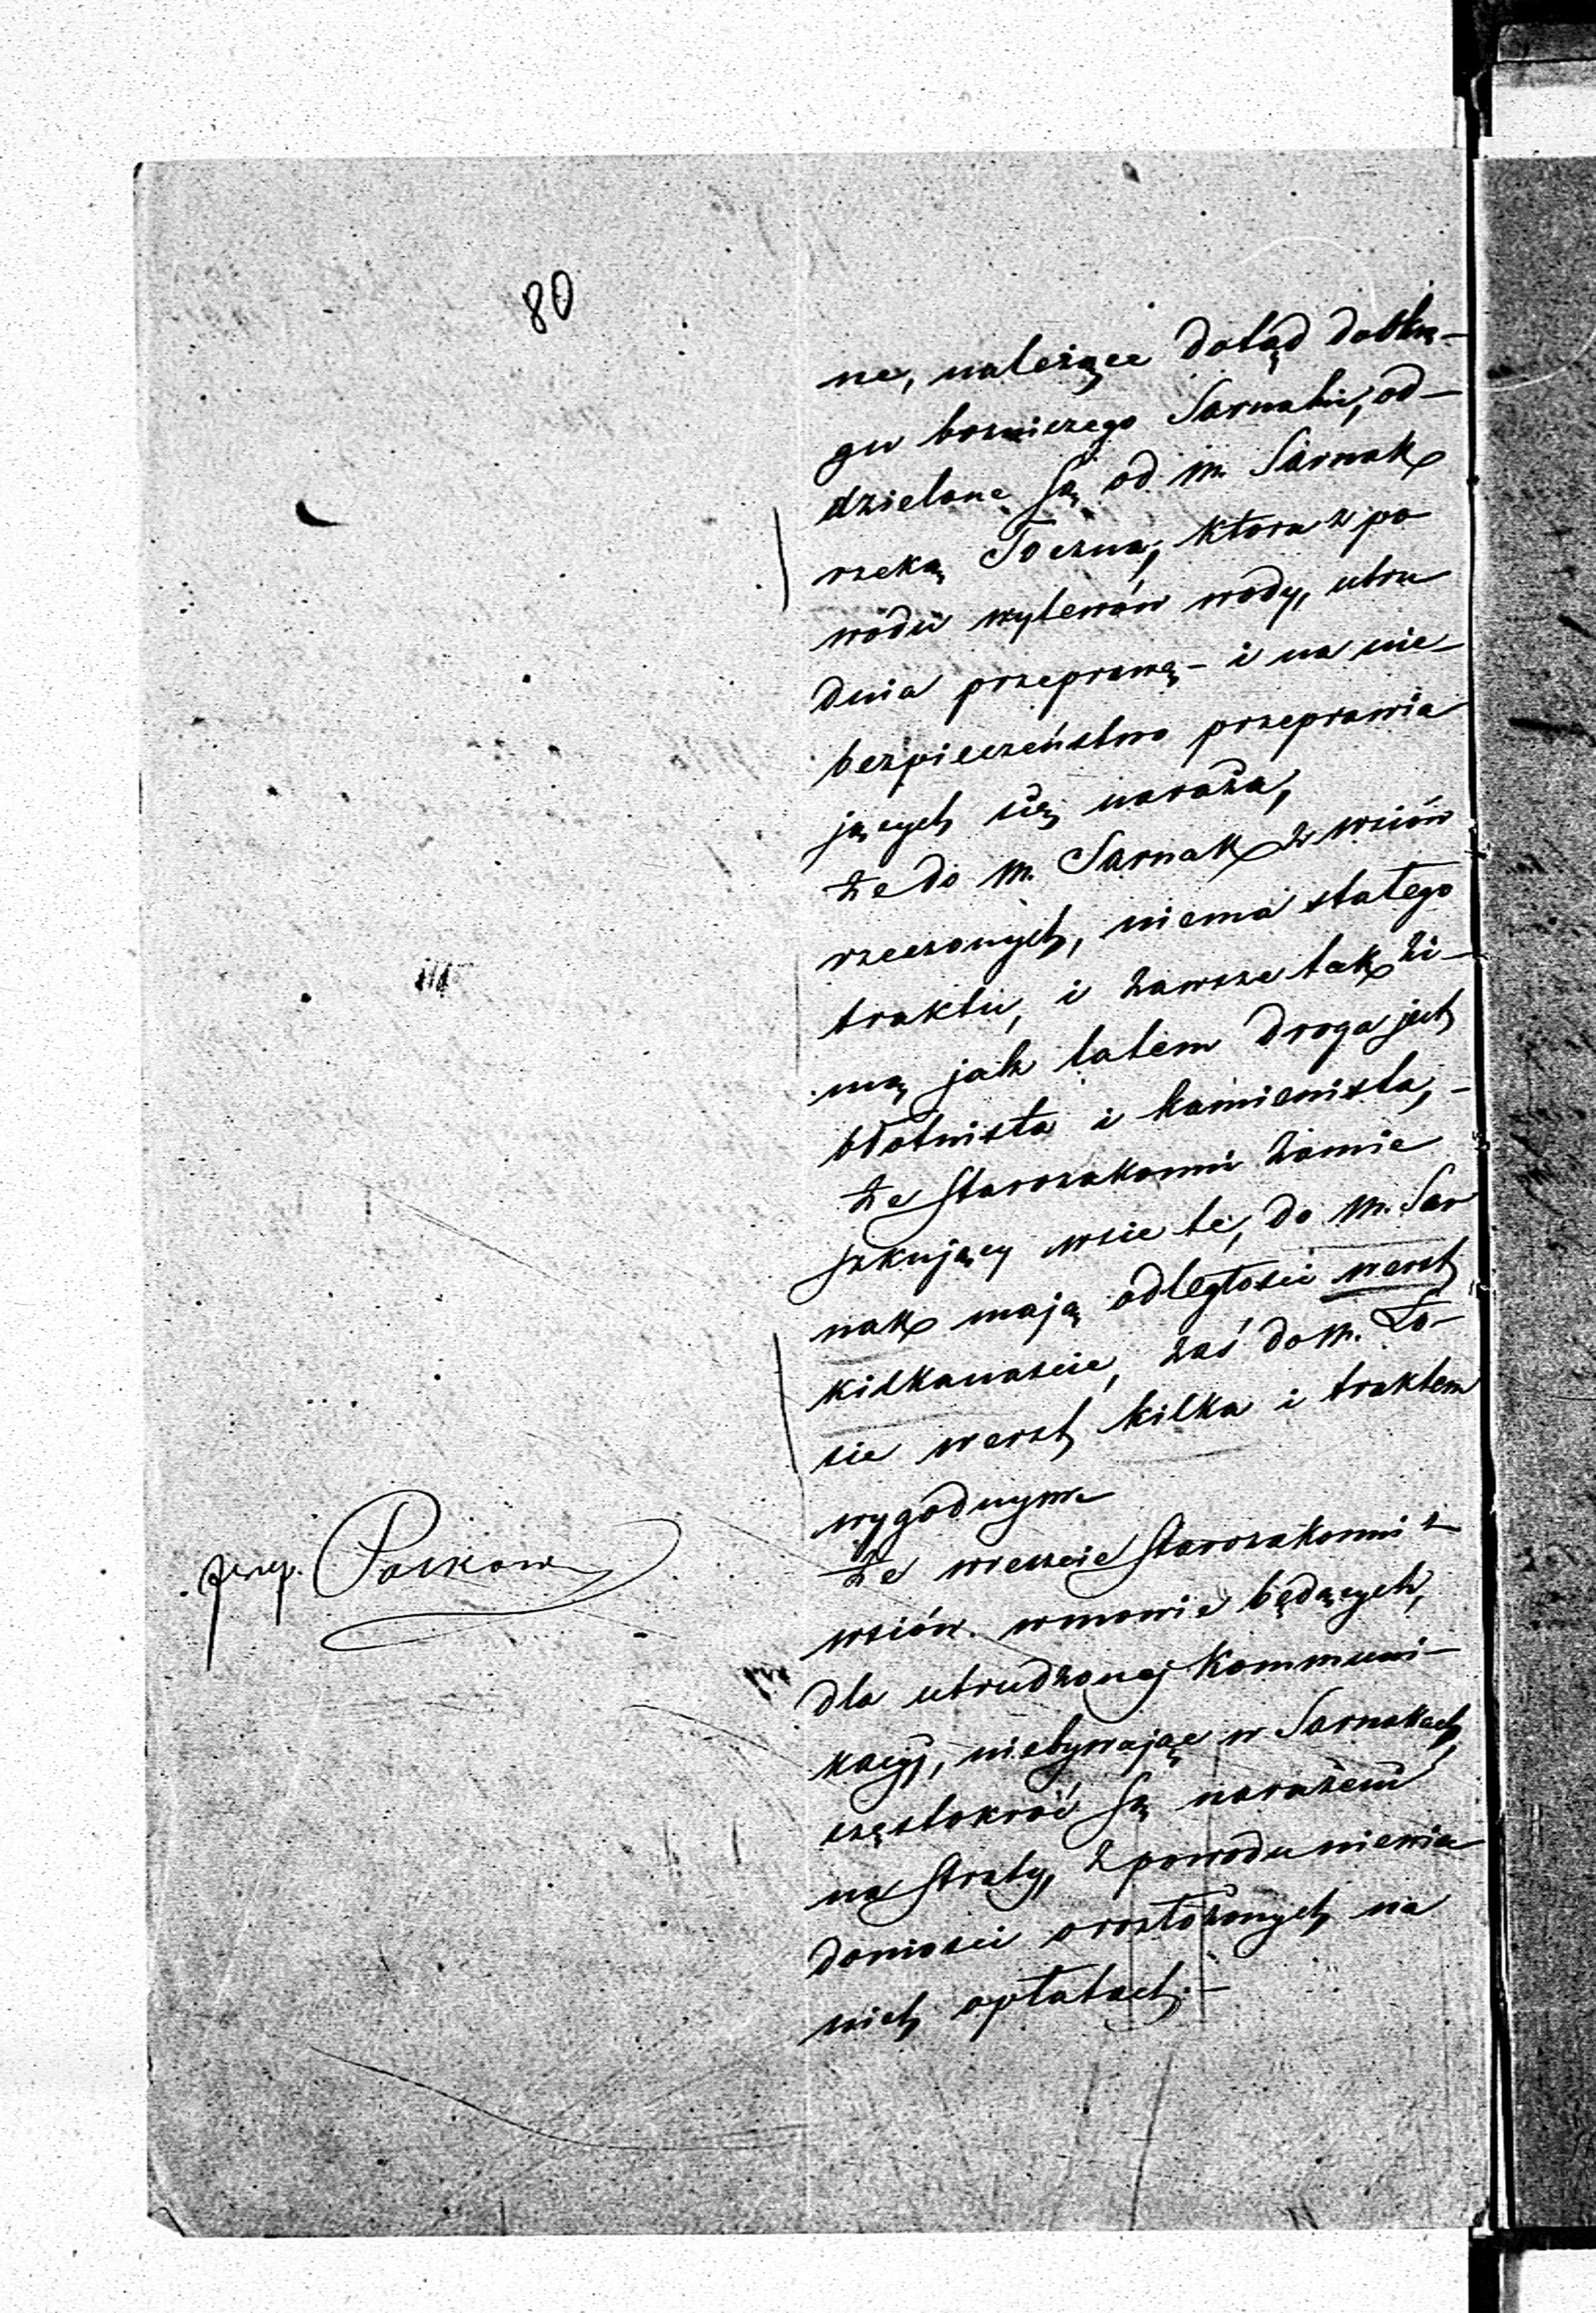 80
ne, należące dotąd do Okrę-
gu bożniczego Sarnaki, od-
dzielone są od m. Sarnak
rzeką Toczną, ktora z po
wodu wylewów wody, utru
dnia przeprawę - i na nie-
bezpieczeństwo przeprawia
jących się naraża,
że do m. Sarnak z wsiów
rzeczonych, niema stałego
traktu, i zawsze tak zi-
mą jak latem droga jest
błotnista i kamienista, -
że starozakonni zamie
szkujący wsie te, do m. Sar
nak mają odległości werst
kilkanaście, zaś do m. Ło-
sic werst kilka i traktem
wygodnym
że wreszcie starozakonni z
wsiów w mowie będących,
dla utrudzonej kommuni-
kacyi, niebywając w Sarnakach,
częstokroć są narażeni
na straty, z powodu niewia
domości o rozłożonych na
nich opłatach. -